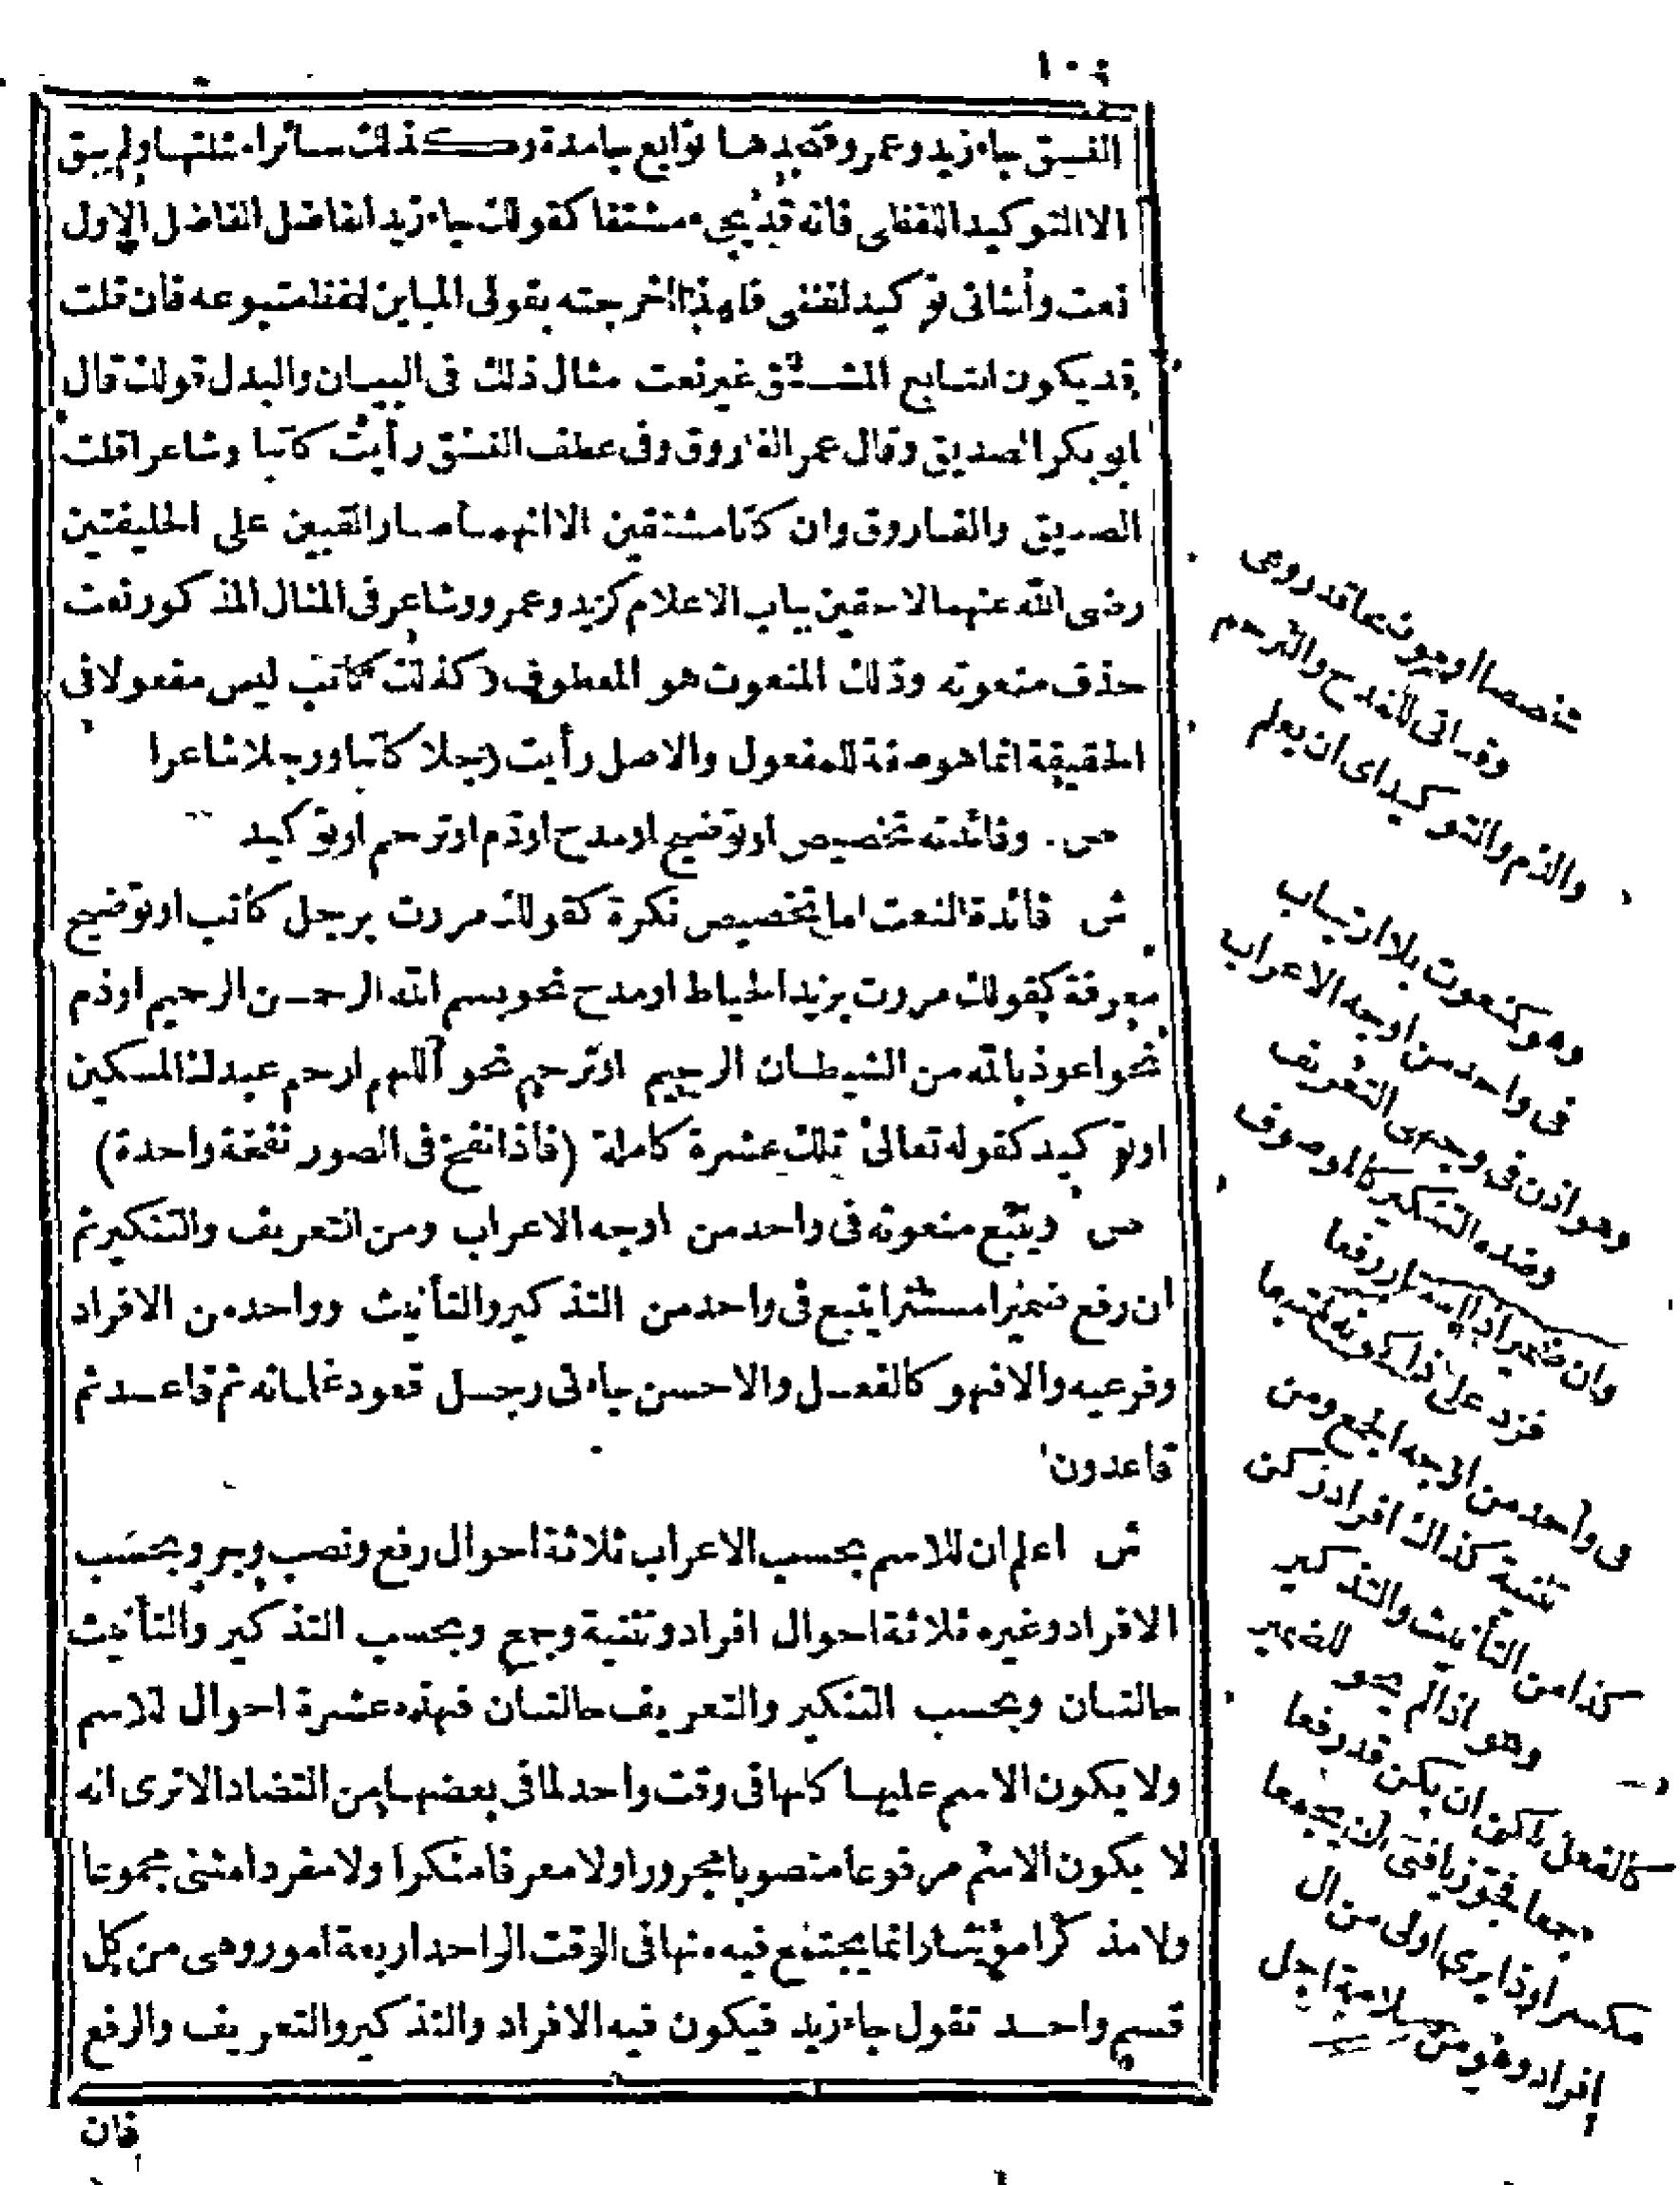 النسق جاء زيد وعمرو وتجدها توابع جامدة وكذلك سائر امثلتها ولم يبق
الا التوكيد اللفظى فانه قد يجىء مشتقا كقولك جاء زيد الفاضل الفاضل الاول
نعت والثانى توكيد لفظى فلهذا اخرجته بقولى المباين للفظ متبوعه فان قلت
قد يكون التابع المشتق غير نعت مثال ذلك فى البيان والبدل قولك قال
ابو بكر الصديق وقال عمر الفاروق وفى عطف النسق رأيت كاتبا وشاعرا قلت
الصديق والفاروق وان كانا مشتقين الا انهما صارا لقبين على الخليفتين
رضى الله عنهما لاحقين بباب الاعلام كزيد وعمرو وشاعر فى المثال المذكور نعت
حذف منعوته وذلك المنعوت هو المعطوف وكذلك كاتب ليس مفعولا فى
الحقيقة انما هو صفة للمفعول والاصل رأيت رجلا كاتبا ورجلا شاعرا
ص وفائدته تخصيص او توضيح او مدح او ذم او ترحم او توكيد
ش فائدة النعت اما تخصيص نكرة كقولك مررت برجل كاتب او توضيح
معرفة كقولك مررت بزيد الخياط او مدح نحو بسم الله الرحمن الرحيم او ذم
نحو اعوذ بالله من الشيطان الرجيم او ترحم نحو اللهم ارحم عبدك المسكين
او توكيد كقوله تعالى تلك عشرة كاملة (فاذا نفخ فى الصور نفخة واحدة)
ص ويتبع منعوته فى واحد من اوجه الاعراب ومن التعريف والتنكير ثم
ان رفع ضميرا مستترا يتبع فى واحد من التذكير والتأنيث وواحد من الافراد
وفرعيه والا فهو كالفعل والاحسن جاءنى رجل قعود غلمانه ثم قاعد ثم
قاعدون
ش اعلم ان للاسم بحسب الاعراب ثلاثة احوال رفع ونصب وجر وبحسب
الافراد وغيره ثلاثة احوال افراد وتثنية وجمع وبحسب التذكير والتأنيث
حالتان وبحسب التنكير والتعريف حالتان فهذه عشرة احوال للاسم
ولا يكون الاسم عليها كلها فى وقت واحد لما فى بعضها من التضاد الا ترى انه
لا يكون الاسم مرفوعا منصوبا مجرورا ولا معرفا منكرا ولا مفردا مثنى مجموعا
ولا مذكرا مؤنثا وانما يجتمع فيه منها فى الوقت الواحد اربعة امور وهى من كل
قسم واحد تقول جاء زيد فيكون فيه الافراد والتذكير والتعريف والرفع
فان
وقد اتى للمدح والترحم
والذم والتوكيد اى ان يعلم
وهو كنعوت بلا ارتياب
فى واحد من اوجه الاعراب
وهو اذن فى وجهى التعريف
وضده التنكير كالموصوف
فى واحد من اوجه الجمع ومن
تثنية كذاك افراد زكن
كذا من التأنيث والتذكير
وهو اذا لم للضمير
كالفعل لكن ان يكن قد رفعا
مكسرا وذا يرى اولى من ال
افراد وهو من سلامة اجل